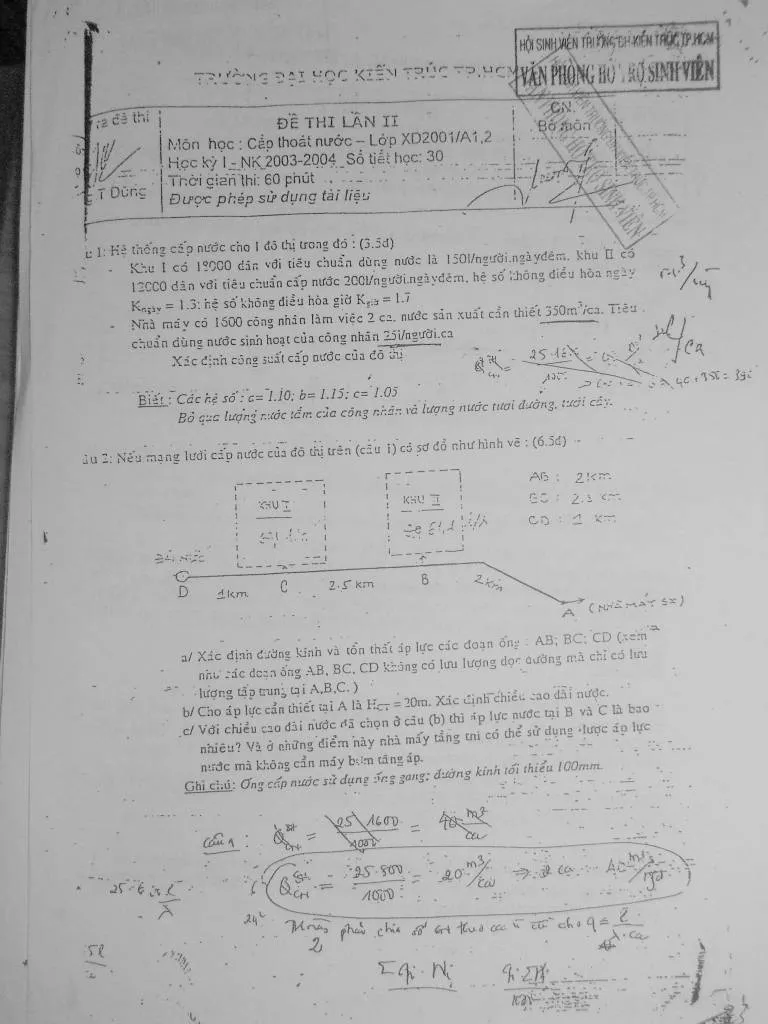 HỘI SINH VIÊN TRƯỜNG ĐH KIẾN TRÚC TP.HCM
VĂN PHÒNG HỖ TRỢ SINH VIÊN
TRƯỜNG ĐẠI HỌC KIẾN TRÚC TP.HCM
ra đề thi
T Dũng
ĐỀ THI LẦN II
Môn học : Cấp thoát nước – Lớp XD2001/A1,2
Học kỳ I - NK 2003-2004 Số tiết học: 30
Thời gian thi: 60 phút
Được phép sử dụng tài liệu
CN.
Bộ môn
u 1: Hệ thống cấp nước cho 1 đô thị trong đó : (3.5đ)
- Khu I có 18000 dân với tiêu chuẩn dùng nước là 150l/người.ngàyđêm, khu II có
12000 dân với tiêu chuẩn cấp nước 200l/người.ngàyđêm, hệ số không điều hòa ngày
Kngày = 1.3; hệ số không điều hòa giờ Kgiờ = 1.7
- Nhà máy có 1600 công nhân làm việc 2 ca, nước sản xuất cần thiết 350m³/ca. Tiêu
chuẩn dùng nước sinh hoạt của công nhân 25l/người.ca
Xác định công suất cấp nước của đô thị
Biết : Các hệ số : a= 1.10; b= 1.15; c= 1.05
Bỏ qua lượng nước tắm của công nhân và lượng nước tưới đường, tưới cây.
âu 2: Nếu mạng lưới cấp nước của đô thị trên (câu 1) có sơ đồ như hình vẽ : (6.5đ)
KHU I
KHU II
AB : 2km
BC : 2.5 km
CD : 1 km
D 1km C 2.5 km B 2km
A (NHÀ MÁY SX)
a/ Xác định đường kính và tổn thất áp lực các đoạn ống : AB; BC; CD (xem
như các đoạn ống AB, BC, CD không có lưu lượng dọc đường mà chỉ có lưu
lượng tập trung tại A,B,C. )
b/ Cho áp lực cần thiết tại A là HCT = 20m. Xác định chiều cao đài nước.
c/ Với chiều cao đài nước đã chọn ở câu (b) thì áp lực nước tại B và C là bao
nhiêu? Và ở những điểm này nhà mấy tầng thì có thể sử dụng được áp lực
nước mà không cần máy bơm tăng áp.
Ghi chú: Ống cấp nước sử dụng ống gang; đường kính tối thiểu 100mm.
Câu 1: Q = 25 1600 / 1000 = 40 m³/ca
Q = 25.800 / 1000 = 20 m³/ca ⇒ 2 ca 40